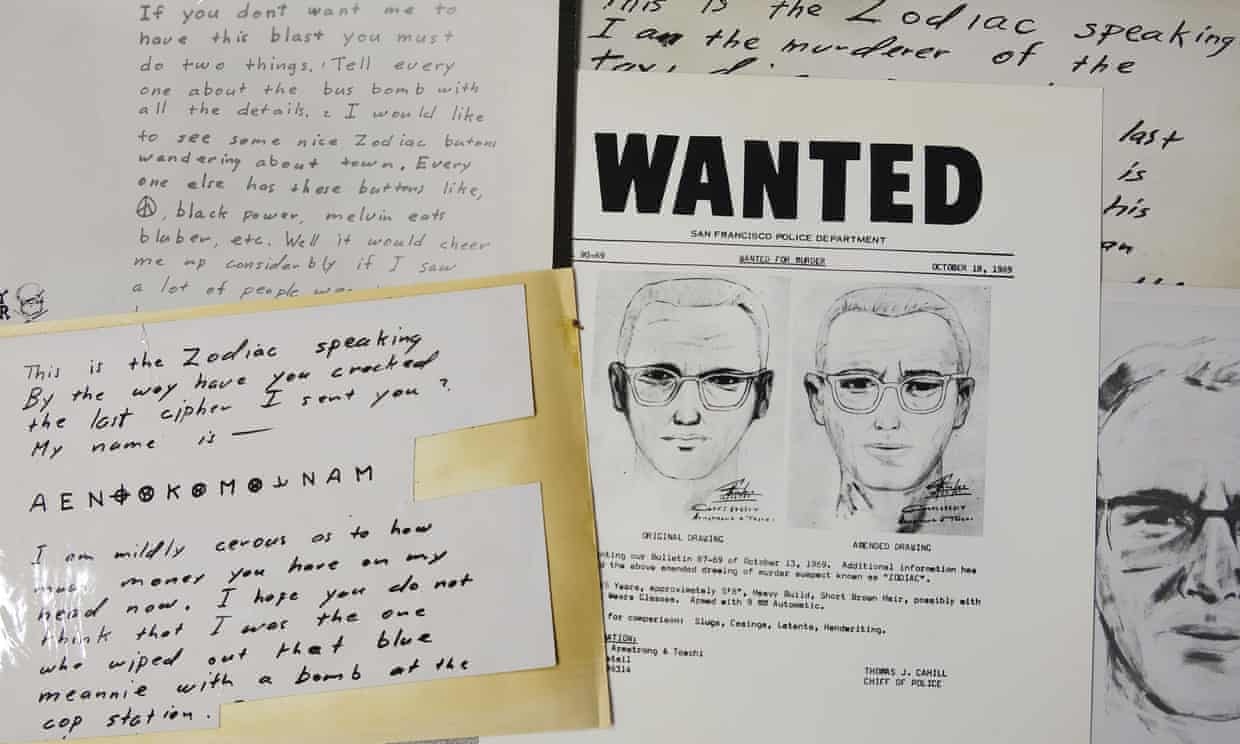 If you dont want me to
have this blast you must
do two things. 1 Tell every
one about the bus bomb with
all the details. 2 I would like
to see some nice Zodiac butons
wandering about town. Every
one else has these buttons like,
☮, black power, melvin eats
bluber, etc. Well it would cheer
me up considerbly if I saw
a lot of people
This is the Zodiac speaking
By the way have you cracked
the last cipher I sent you?
My name is —
AEN⌖⊗K⊗M⊗⅃NAM
I am mildly cerous as to how
much money you have on my
head now. I hope you do not
think that I was the one
who wiped out that blue
meannie with a bomb at the
cop station.
This is the Zodiac speaking
I am the murderer of the
last
is
his
WANTED
SAN FRANCISCO POLICE DEPARTMENT
90-69 WANTED FOR MURDER OCTOBER 18, 1969
ORIGINAL DRAWING AMENDED DRAWING
our Bulletin 87-69 of October 13, 1969. Additional information has
the above amended drawing of murder suspect known as "ZODIAC".
Years, approximately 5'8", Heavy Build, Short Brown Hair, possibly with
Wears Glasses. Armed with 9 MM Automatic.
for comparison: Slugs, Casings, Latents, Handwriting.
Armstrong & Toschi
THOMAS J. CAHILL
CHIEF OF POLICE